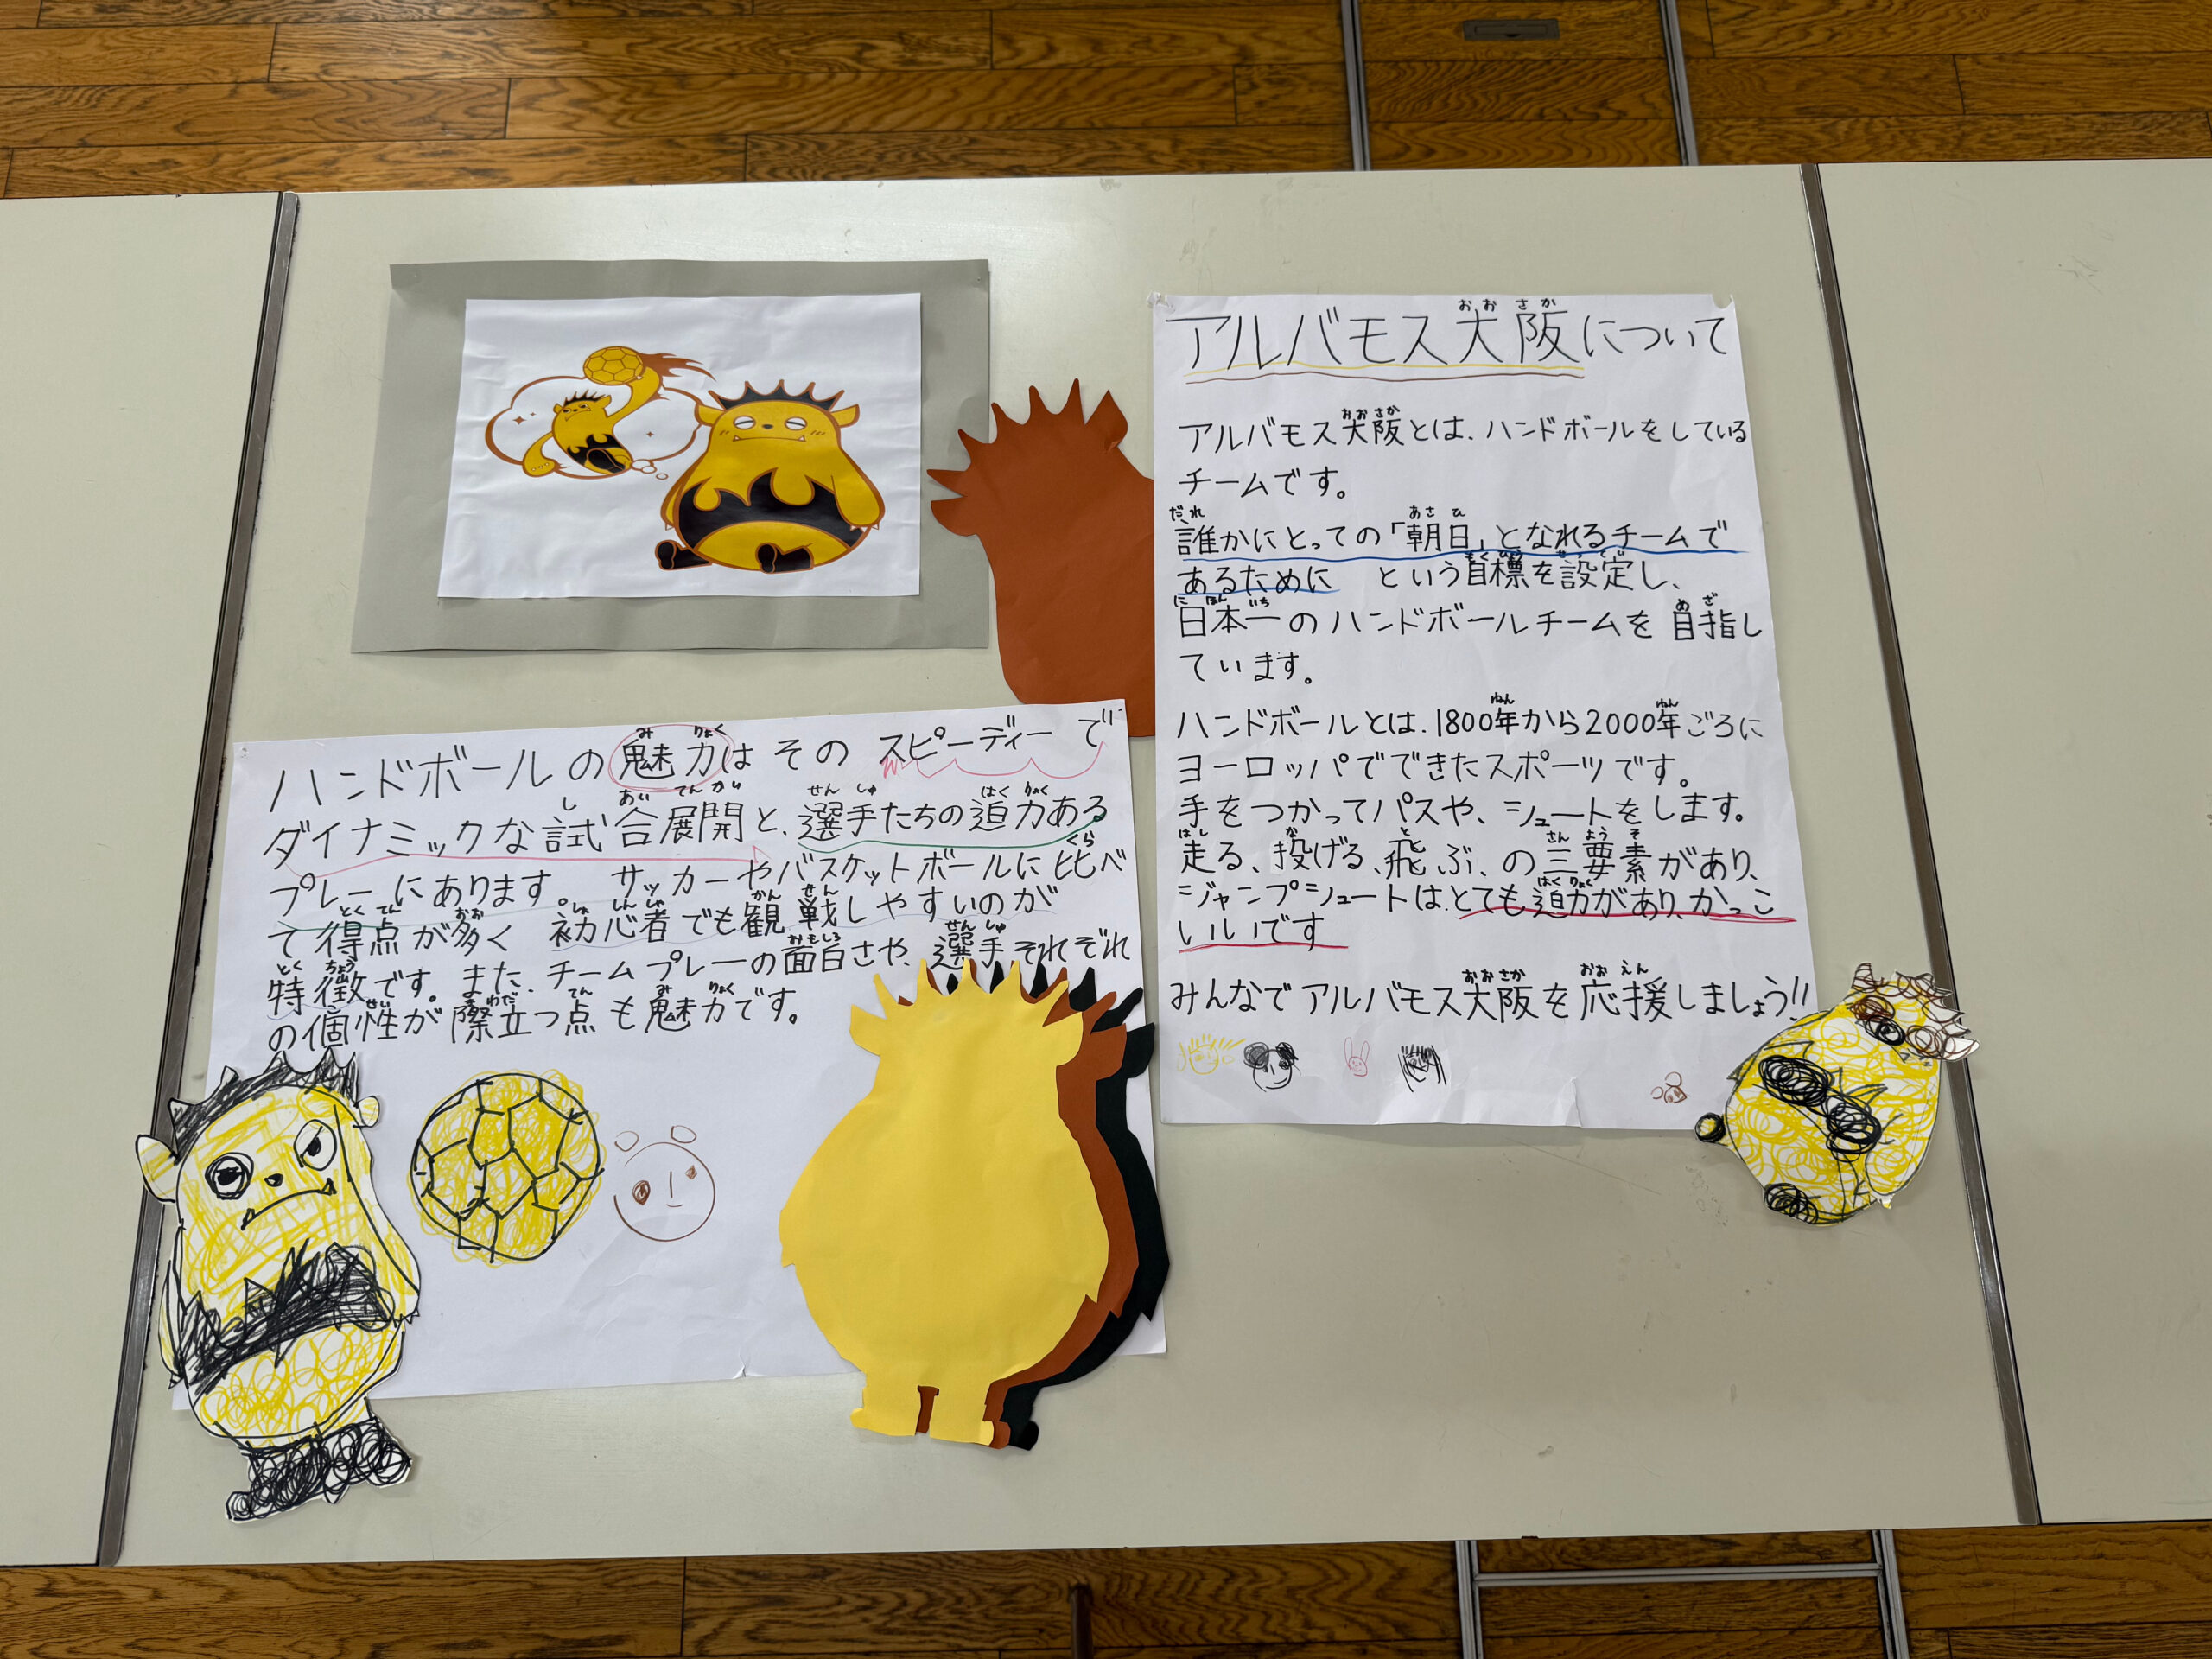 アルバモス大阪について
アルバモス大阪とは、ハンドボールをしている
チームです。
誰かにとっての「朝日」となれるチームで
あるために という目標を設定し、
日本一のハンドボールチームを目指し
ています。
ハンドボールとは、1800年から2000年ごろに
ヨーロッパでできたスポーツです。
手をつかってパスや、シュートをします。
走る、投げる、飛ぶ、の三要素があり、
ジャンプシュートは、とても迫力があり、かっこ
いいです
みんなでアルバモス大阪を応援しましょう!!
ハンドボールの魅力はその スピーディーで
ダイナミックな試合展開と、選手たちの迫力ある
プレーにあります。サッカーやバスケットボールに比べ
て得点が多く 初心者でも観戦しやすいのが
特徴です。また、チームプレーの面白さや、選手それぞれ
の個性が際立つ点も魅力です。